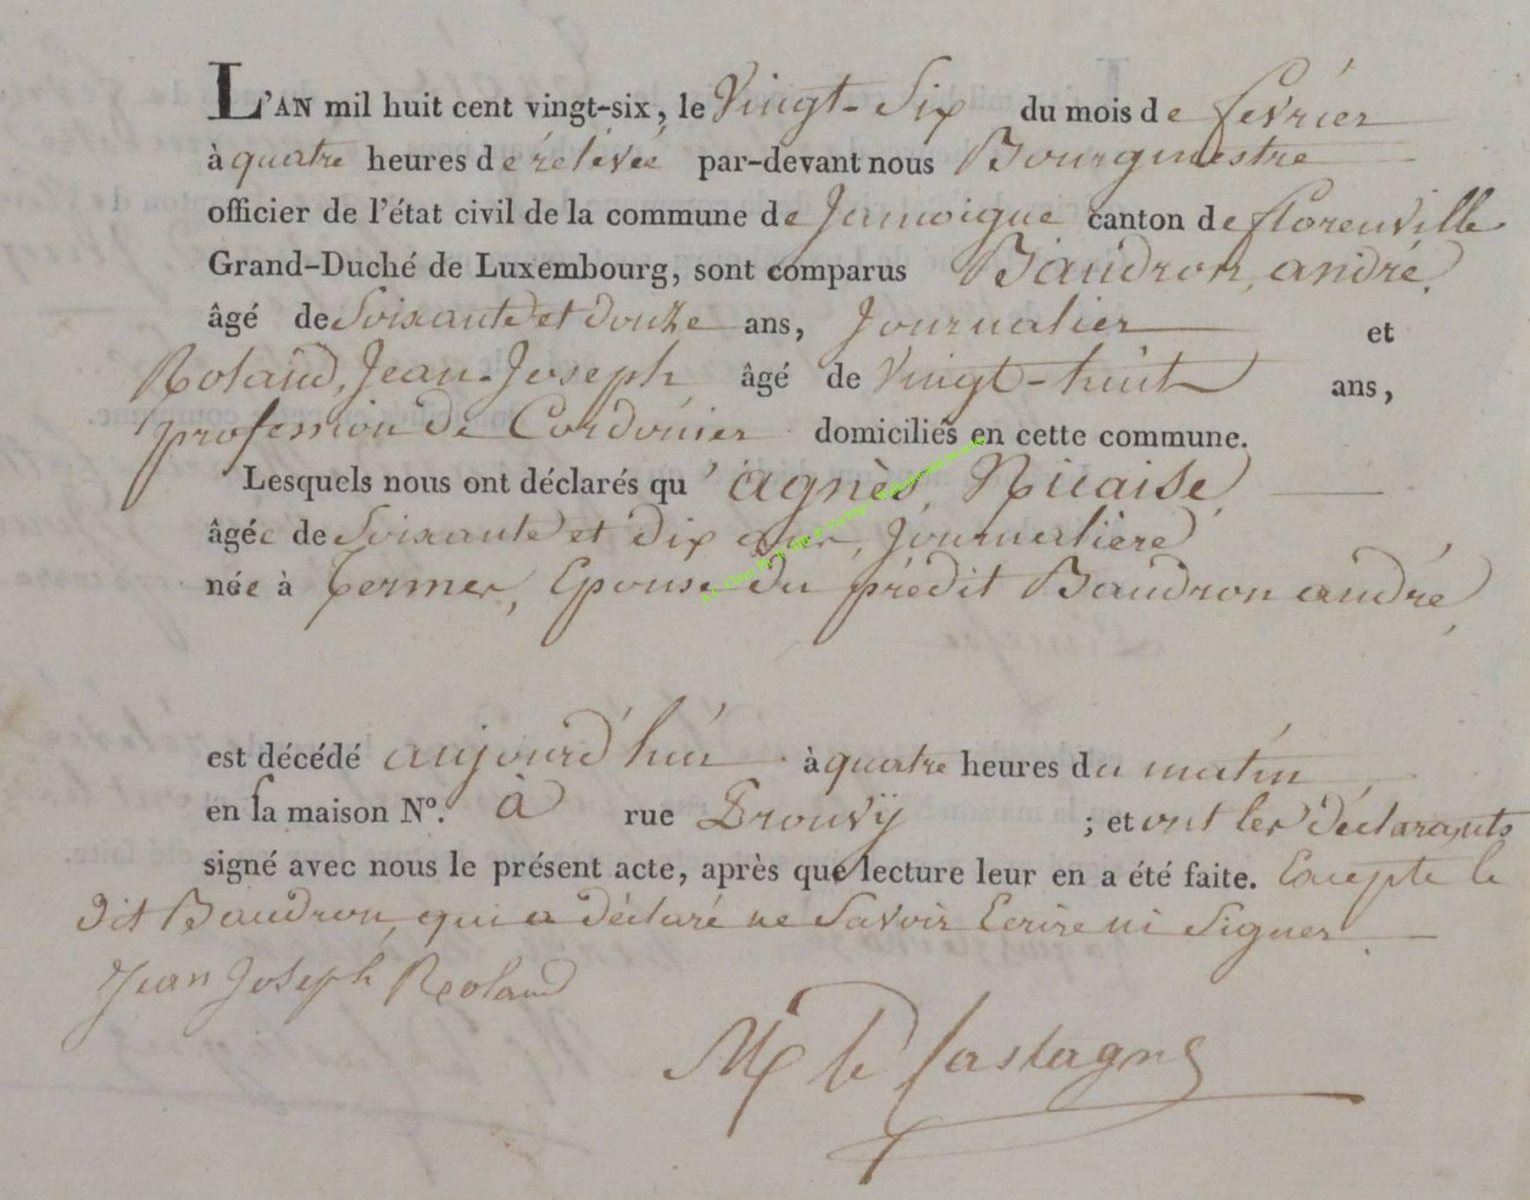 L'AN mil huit cent vingt-six, le Vingt-Six du mois de février
à quatre heures de rélévée par-devant nous Bourgmestre
officier de l'état civil de la commune de Jamoigne canton de florenville
Grand-Duché de Luxembourg, sont comparus Baudron, andré,
âgé de Soixante et douze ans, Journalier et
Roland, Jean-Joseph, âgé de Vingt-huit ans,
profession de Cordonier domiciliés en cette commune.
Lesquels nous ont déclarés qu'agnès, Nicaise,
âgée de Soixante et dix ans, Journalière
née à termes, Epouse du prédit Baudron andré,
est décédé aujourd'hui à quatre heures du matin,
en la maison Nº. à rue Prouvÿ ; et ont les déclarants
signé avec nous le présent acte, après que lecture leur en a été faite. Excepté le
dit Baudron, qui a déclaré ne Savoir Ecrire ni Signer.
Jean Joseph Roland